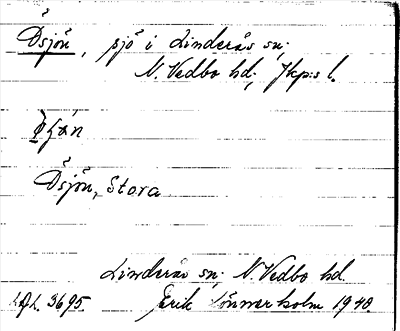 Ösjön, sjö i Linderås sn;
N. Vedbo hd; Jkp:s l.
Ösjön, Stora
Linderås sn; N. Vedbo hd.
3695. Erik Lönnerholm 1940.